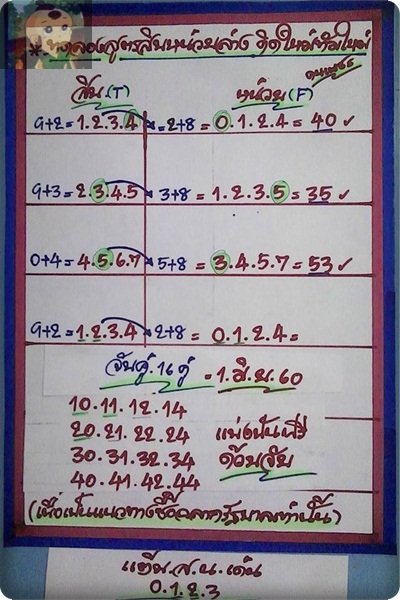 * ทดลองสูตรสิบหน่วยล่าง คิดใหม่ทำใหม่
สิบ (T) หน่วย (F)
9+2 = 1.2.3.4 = 2+8 = 0.1.2.4 = 40 ✓
9+3 = 2.3.4.5 3+8 = 1.2.3.5 = 35 ✓
0+4 = 4.5.6.7 5+8 = 3.4.5.7 = 53 ✓
9+2 = 1.2.3.4 2+8 = 0.1.2.4 =
จับคู่.16 คู่ = 1.มิ.ย.60
10.11.12.14
20.21.22.24 แบ่งปันฟรี
30.31.32.34 ด้วยจับ
40.41.42.44
(เพื่อเป็นแนวทางซื้อฉลากรัฐบาลเท่านั้น)
แต้ม.ส.น.เด่น
0.1.2.3